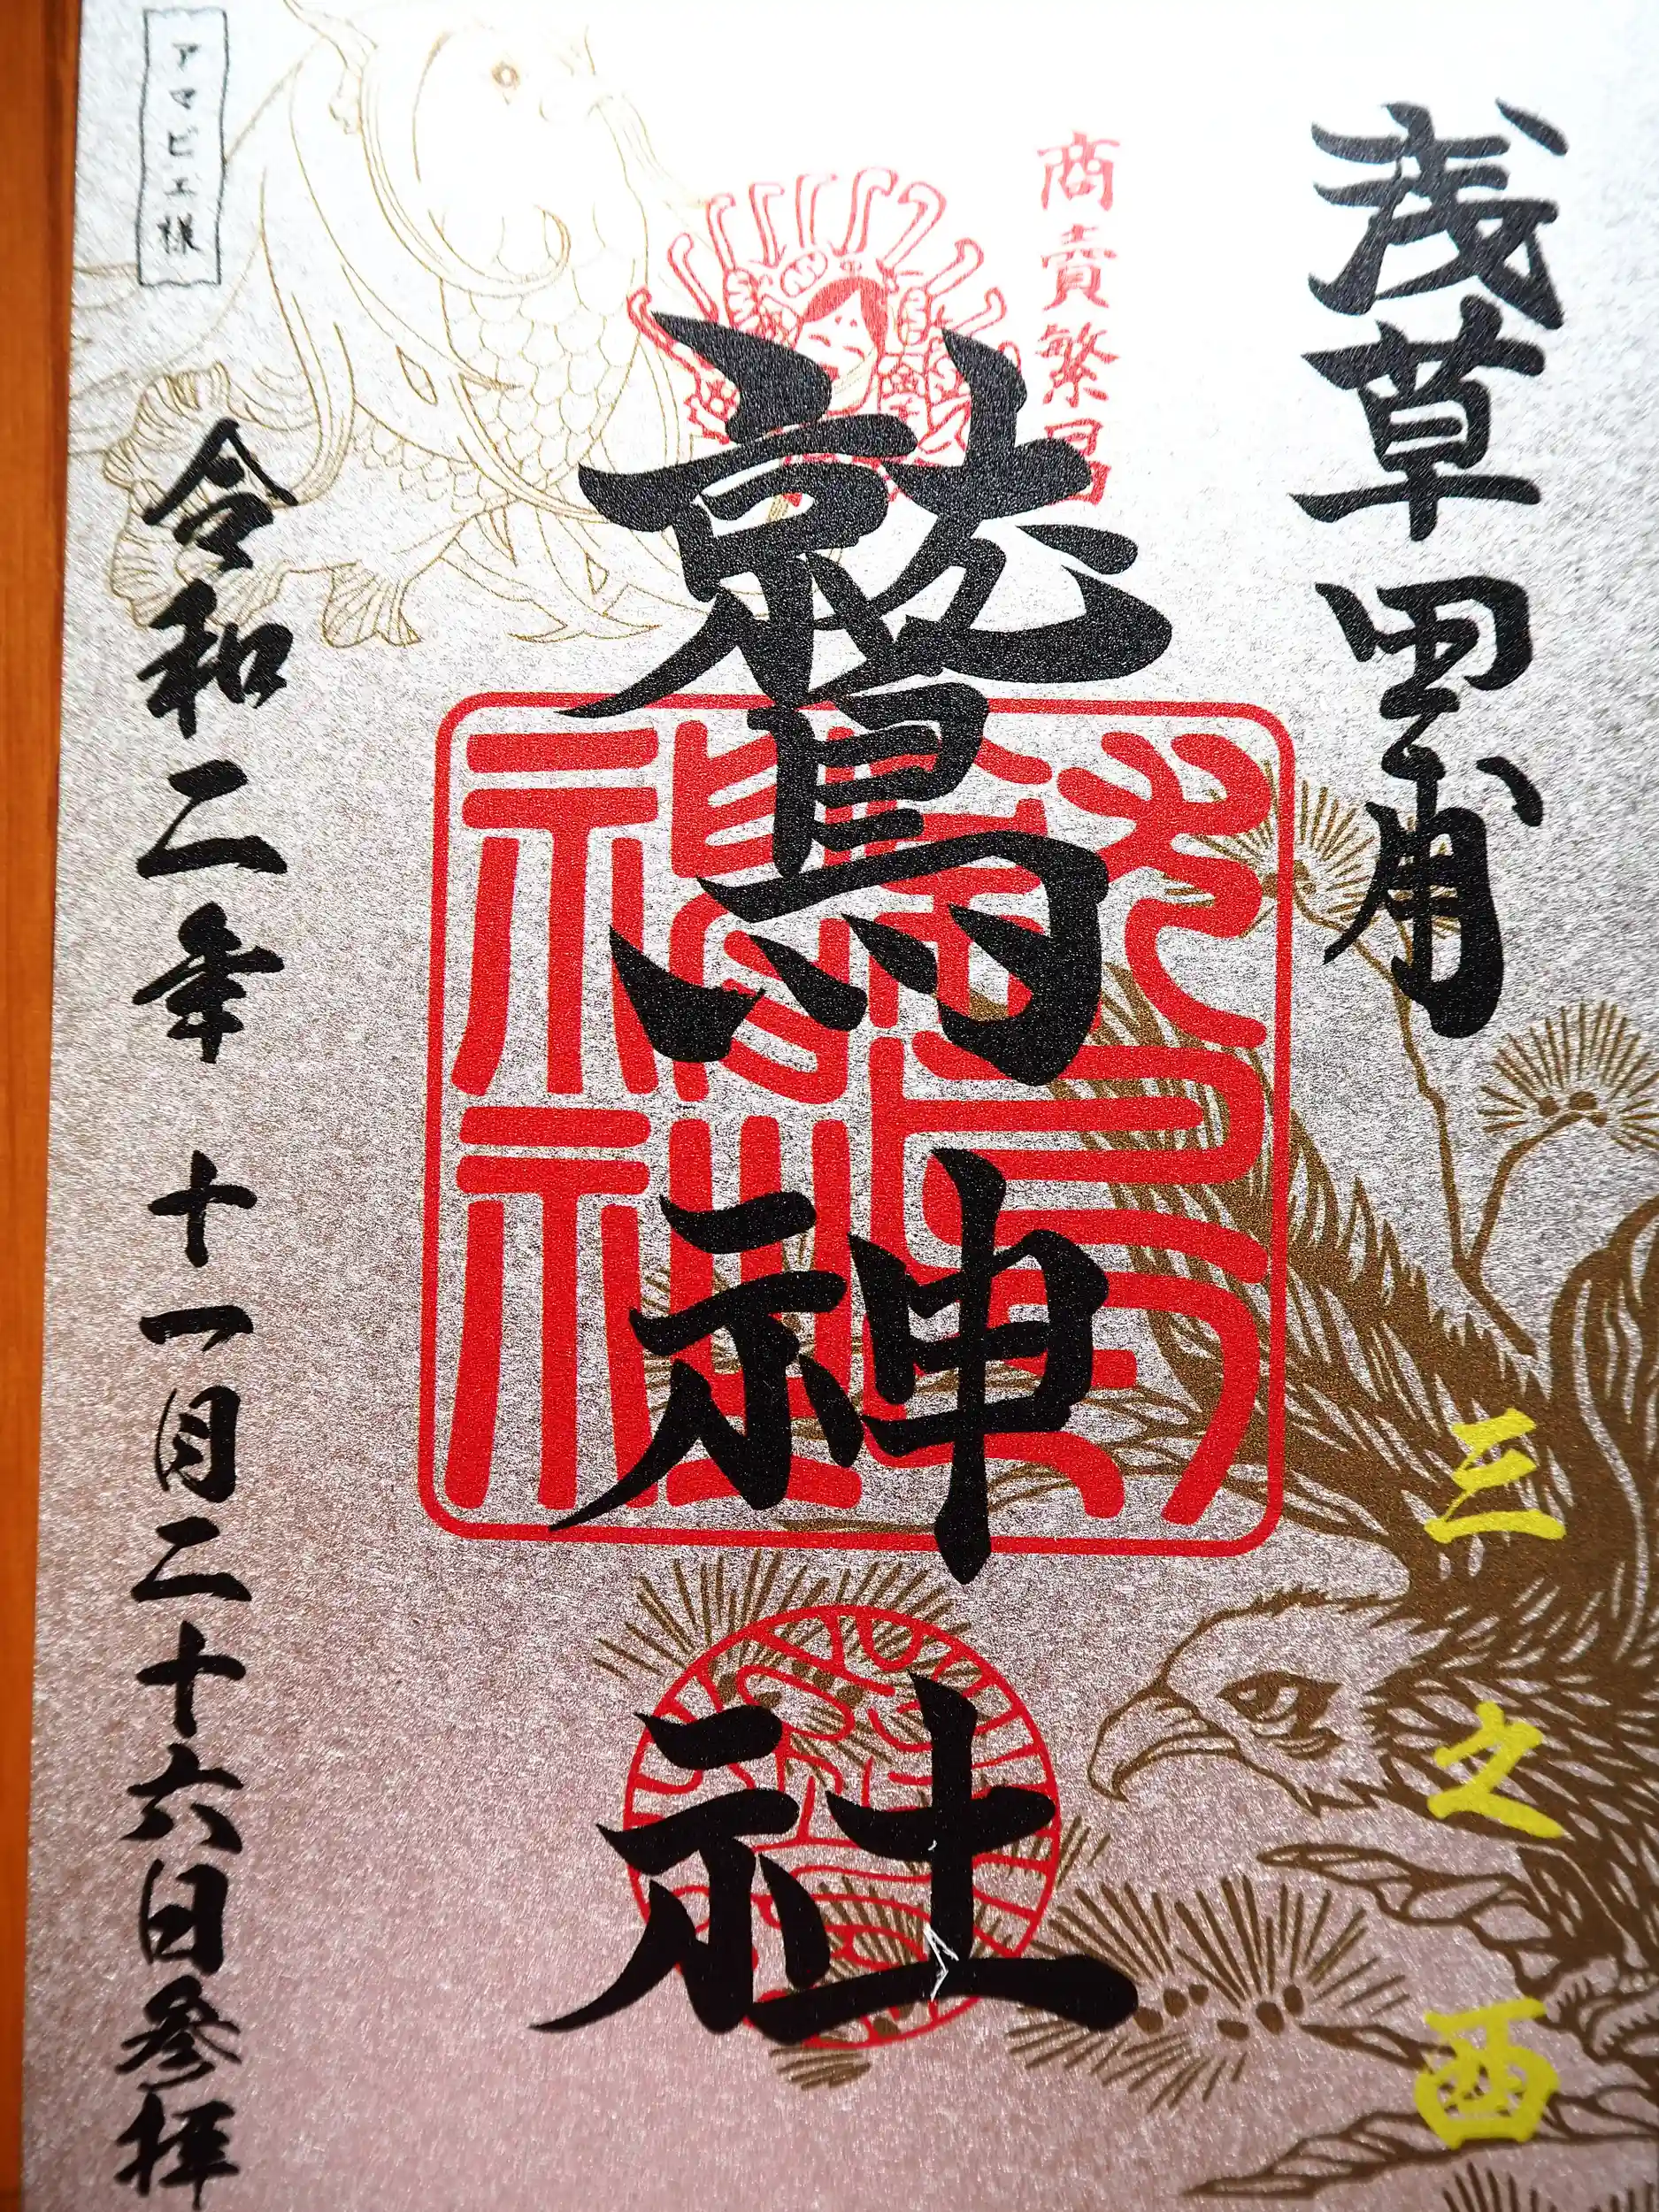 浅草田甫
商賣繁昌
鷲神社
三之酉
鷲神社
令和二年 十一月二十六日参拝
アマビエ様